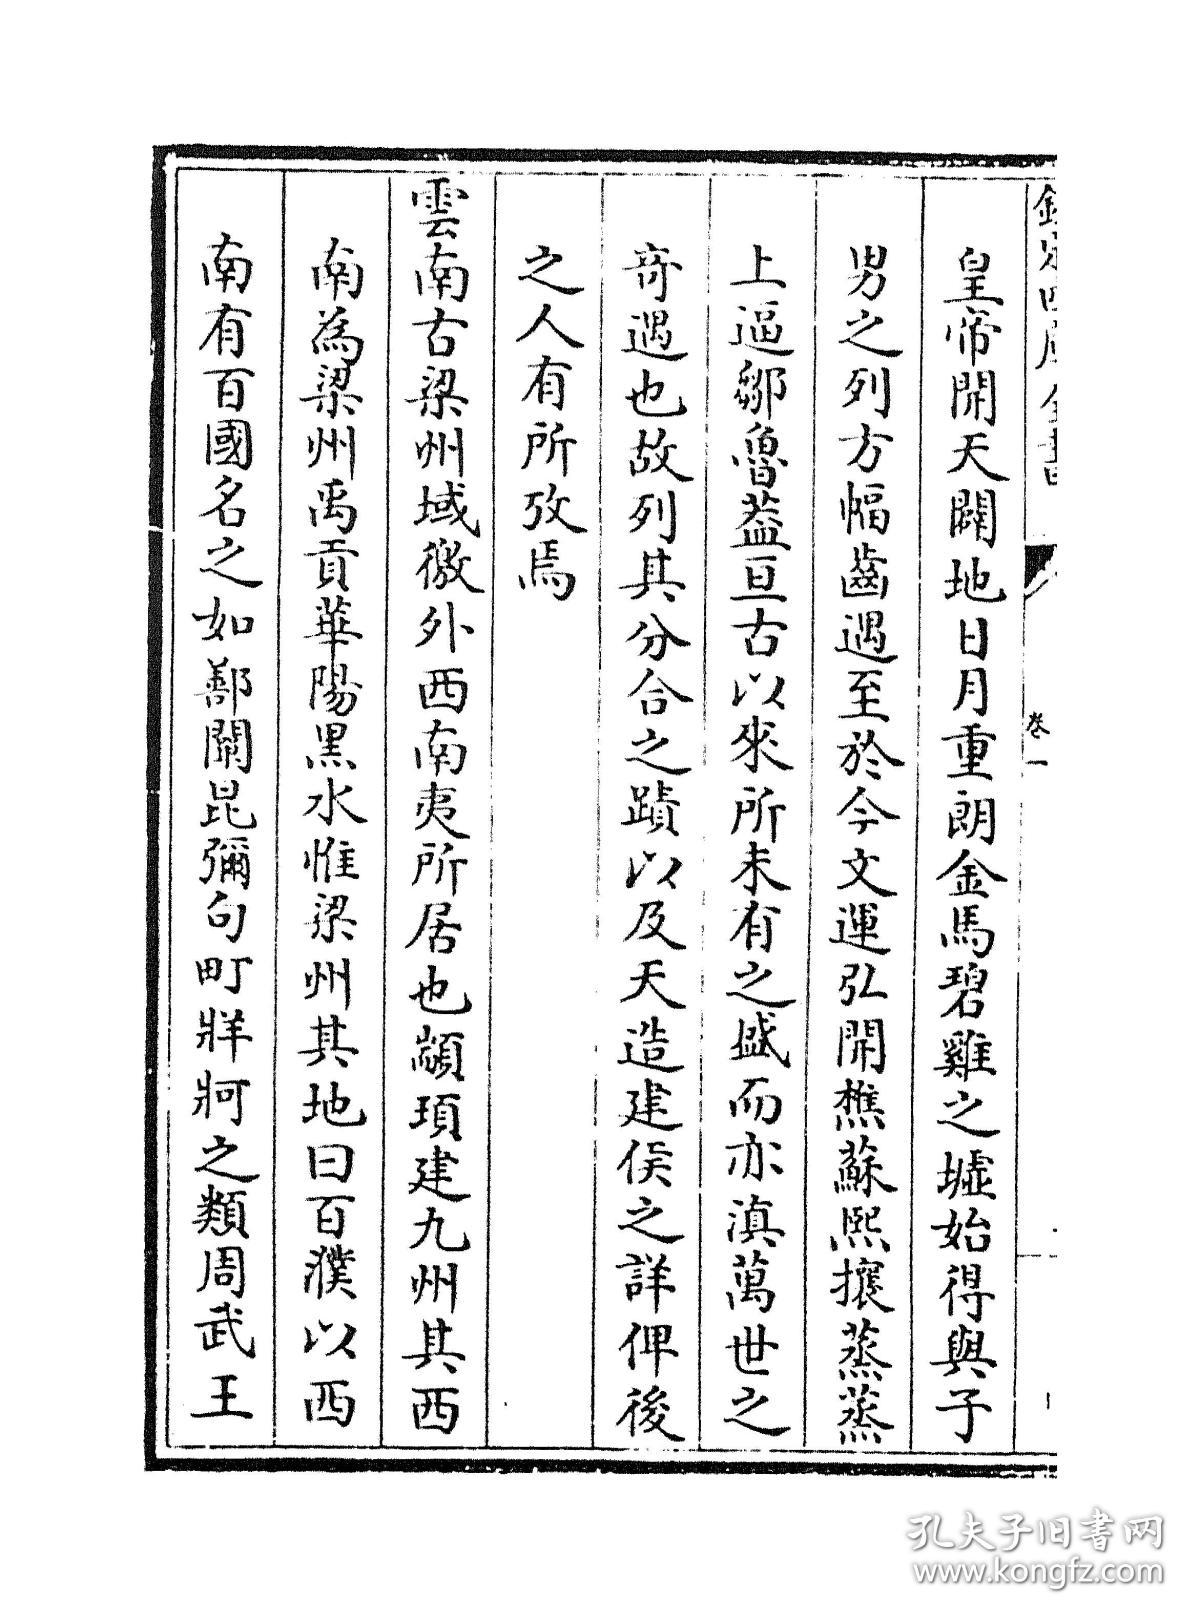 欽定四庫全書
卷一
皇帝開天闢地日月重朗金馬碧雞之墟始得與子
男之列方幅齒遇至於今文運弘開樵蘇熙攘蒸蒸
上逼鄒魯葢亘古以來所未有之盛而亦滇萬世之
竒遇也故列其分合之蹟以及天造建侯之詳俾後
之人有所攷焉
雲南古梁州域徼外西南夷所居也顓頊建九州其西
南為梁州禹貢華陽黑水惟梁州其地曰百濮以西
南有百國名之如鄯闡昆彌句町牂牁之類周武王
孔夫子旧書网
www.kongfz.com